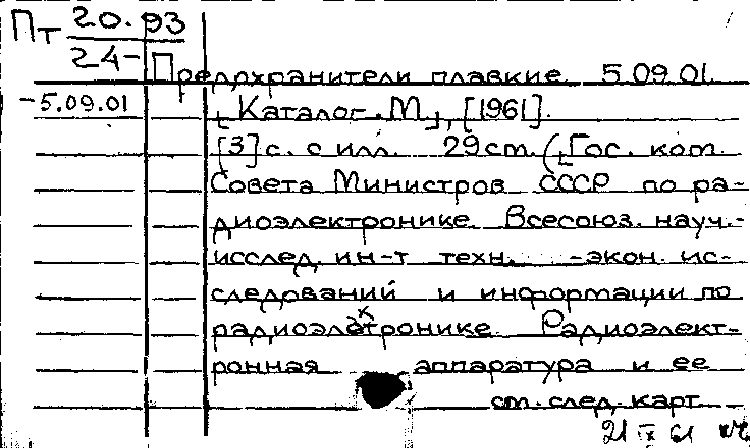 Пт 20.93
24-
Предохранители плавкие. 5.09.01.
-5.09.01
[Каталог. М], [1961].
[3] с. с илл. 29 см. ([Гос. ком.
Совета Министров СССР по ра-
диоэлектронике. Всесоюз. науч.-
исслед. ин-т техн. -экон. ис-
следований и информации по
радиоэлектронике. Радиоэлект-
ронная аппаратура и ее
см. след. карт.
21 IX 61